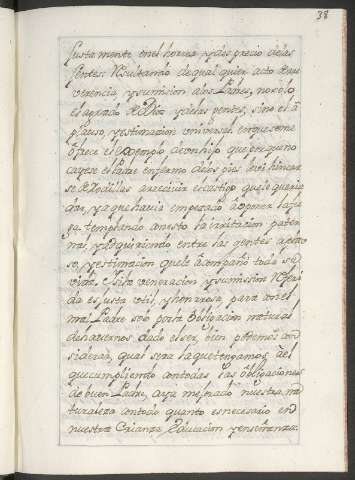 38
justa mente en el horror y desprecio de las
gentes. Resultando de qual quier acto de re
verencia, y sumision a los Padres, no solo
el agrado de Dios y de las gentes, sino el a
plauso, y estimacion universal, en que se me
ofrece el exemplo de un hijo que porque no
cayese el Padre enfermo de los pies, hincar
se de rodillas a recivir el castigo que le queria
dar, y a que havia empezado a poner la fu
ga, templando en esto la irritacion pater
nal, y adquiriendo entre las gentes aplau
so, y estimacion que le acompañó toda su
vida. Si la veneracion y sumision referi
da es justa util, y honrosa, para con el
mal Padre solo por la obligacion natural
de havernos dado el ser, bien podemos con
siderar, qual sera la que tengamos a el
que cumpliendo con todas las obligaciones
de buen Padre, aya mejorado nuestra na
turaleza con todo quanto es necesario en
nuestra Crianza, Educacion y enseñanza.